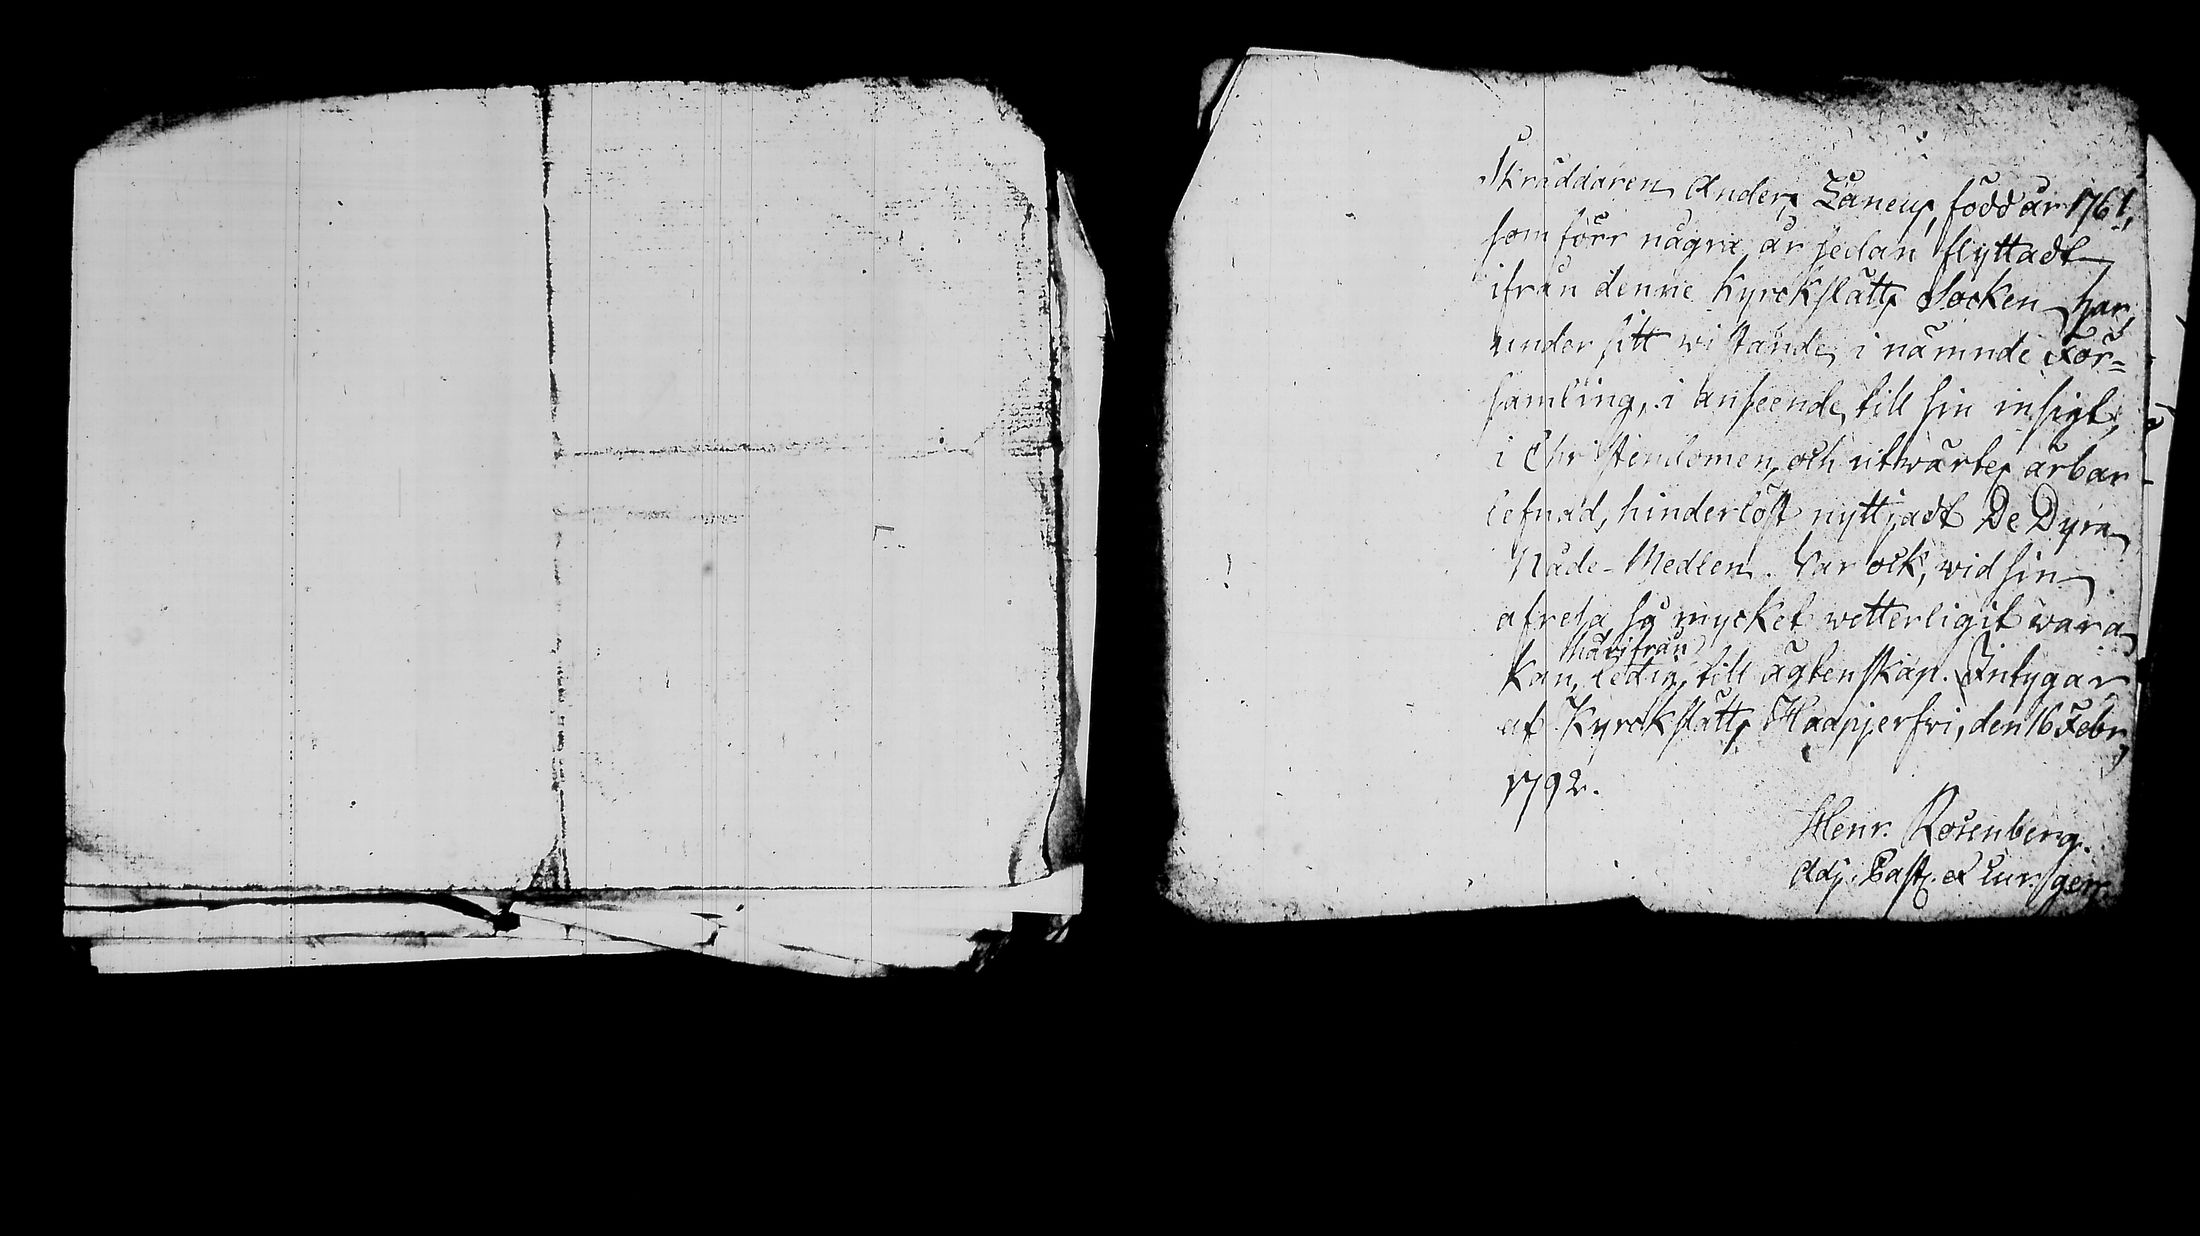 Skräddaren Anders Zaneus, född år 1761,
som förr några år sedan flyttadt
ifrån denne Kyrckslätts Socken har
under sitt wistande i nämnde För=
samling, i anseende till sin insigt
i Christendomen och utwärtes ärbar
lefnad, hinderlöst nyttjadt De Dyra
Nåde-Medlen. Var ock, wid sin
afresa så mycket wetterligit wara
härifrån
kan, ledig till ägtenskap. Intygar
af Kyrckslätts Haapjerfwi, den 16 Febr
1792.
Henr. Rosenberg.
Adj. Past. et